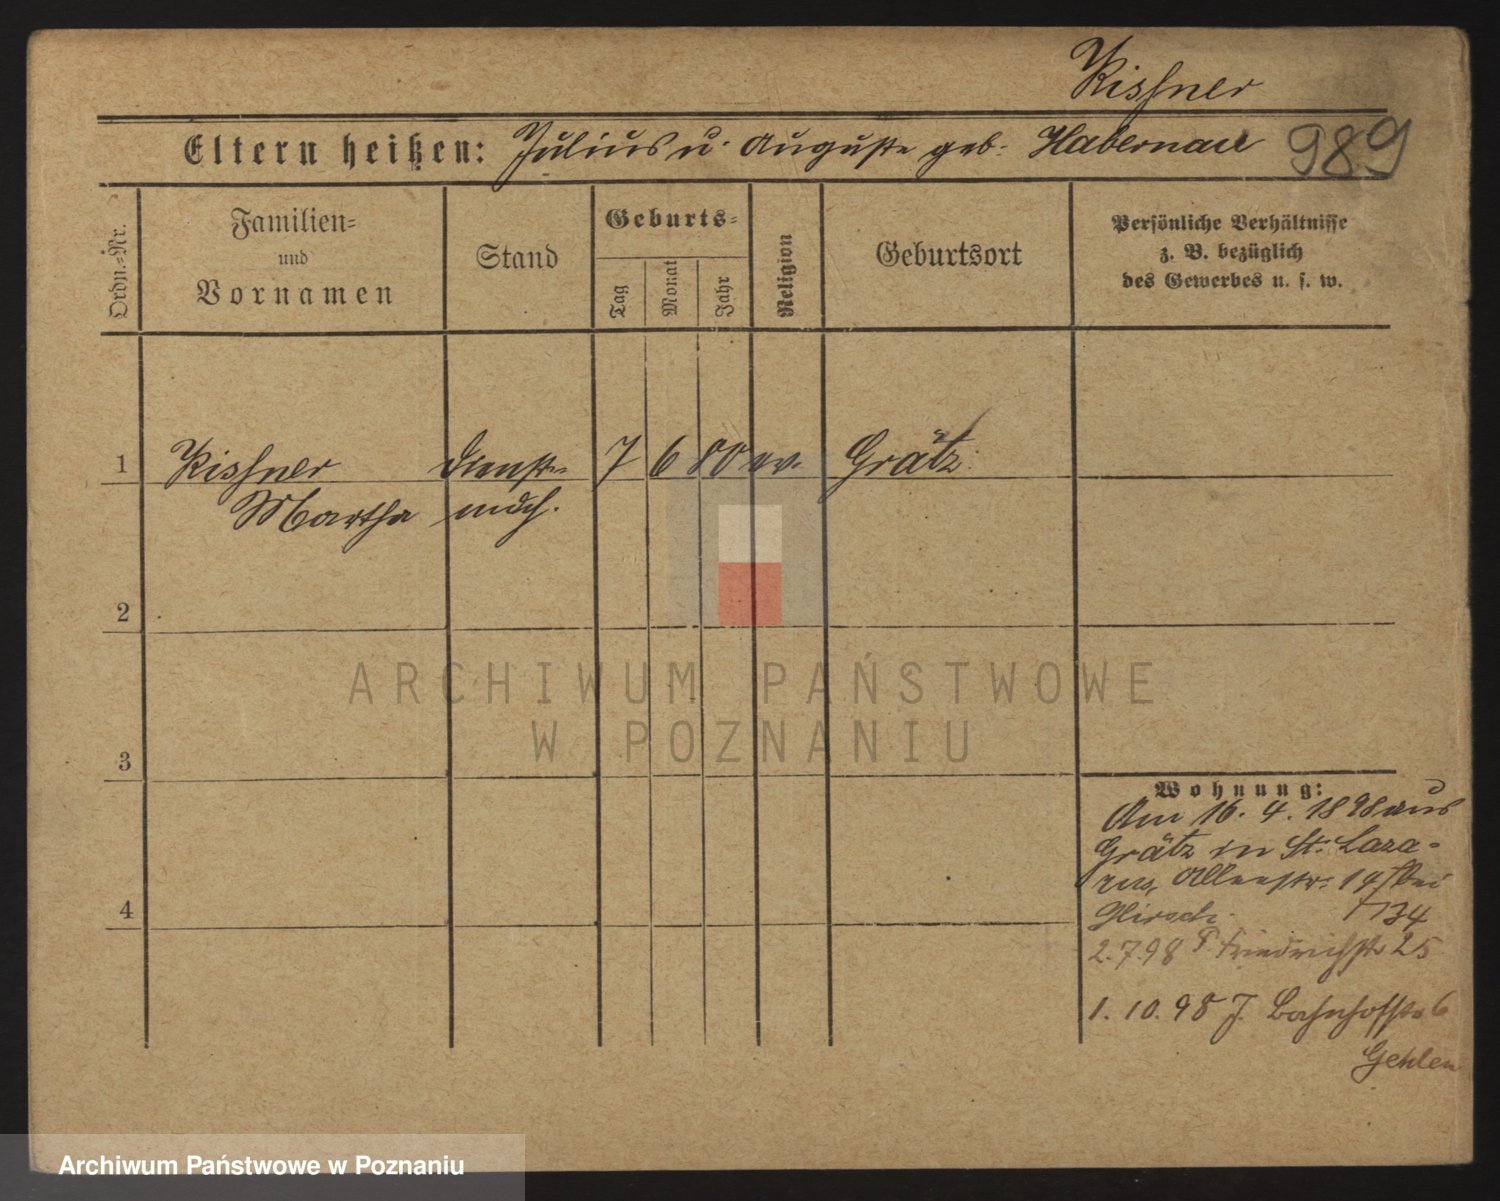 Kissner
Eltern heißen: Julius u. Auguste geb. Habernau 989
Ordn.=Nr.
Familien=
und
Vornamen
Stand
Geburts=
Tag
Monat
Jahr
Religion
Geburtsort
Persönliche Verhältnisse
z. B. bezüglich
des Gewerbes u. s. w.
1 Kissner Dienst- 7 6 80 ev. Grätz
Martha mdch.
2
ARCHIWUM PAŃSTWOWE
W POZNANIU
3
Wohnung:
Am 16. 4. 1898 aus
Grätz in St. Laza-
rus, 19 bei
Hirsch. 34
2.7.98 Friedrichstr 25
1. 10. 98 J. Bahnhofstr 6
4
Gehlen
Archiwum Państwowe w Poznaniu